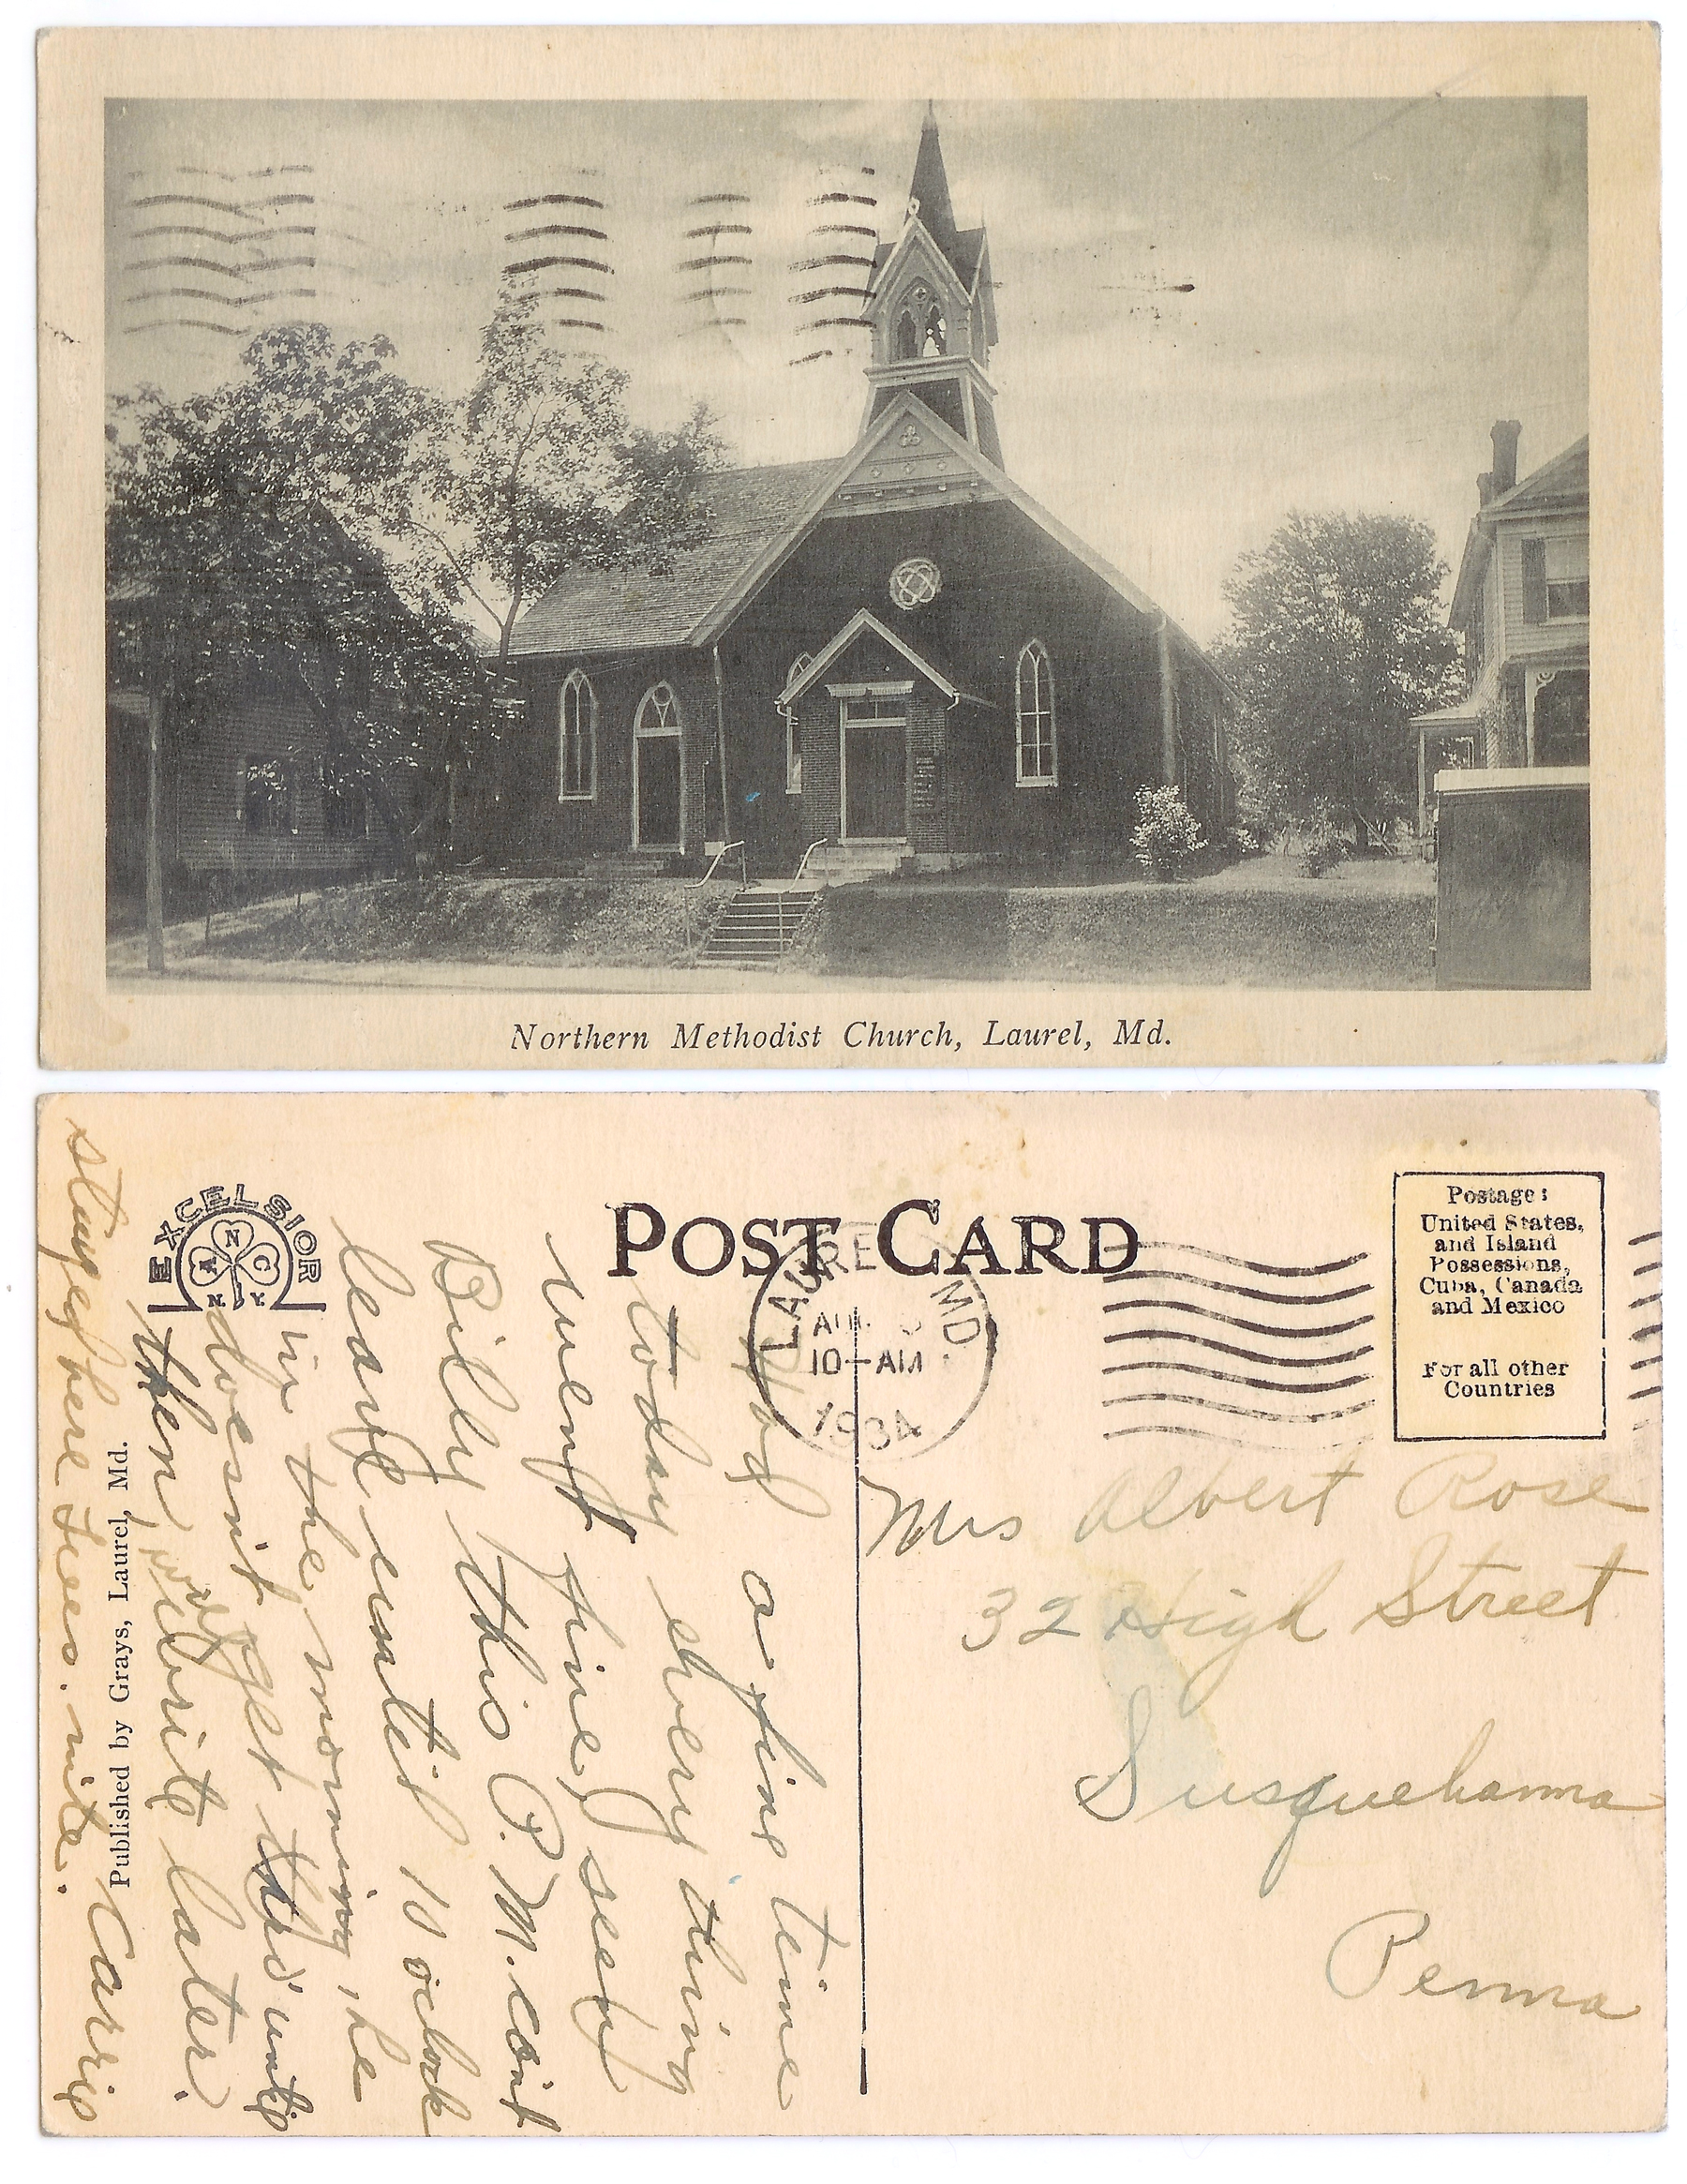 Northern Methodist Church, Laurel, Md.
POST CARD
EXCELSIOR
N
N.Y.
LAUREL MD.
AUG
10-AM
1934
Postage:
United States,
and Island
Possessions,
Cuba, Canada
and Mexico
For all other
Countries
Published by Grays, Laurel, Md.
Had a fine time
today every thing
went fine, seen
Billy this P.M. cant
leave until 10 oclock
in the morning, he
doesnt get thro until
then, will write later.
Carrie
stayed here Tues. nite.
Mrs Albert Rose
32 High Street
Susquehanna
Penna